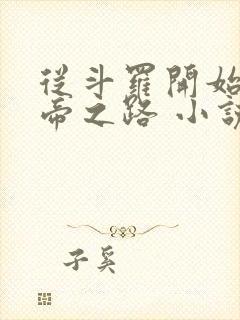 從斗羅開始
帝之路 小說
子奚